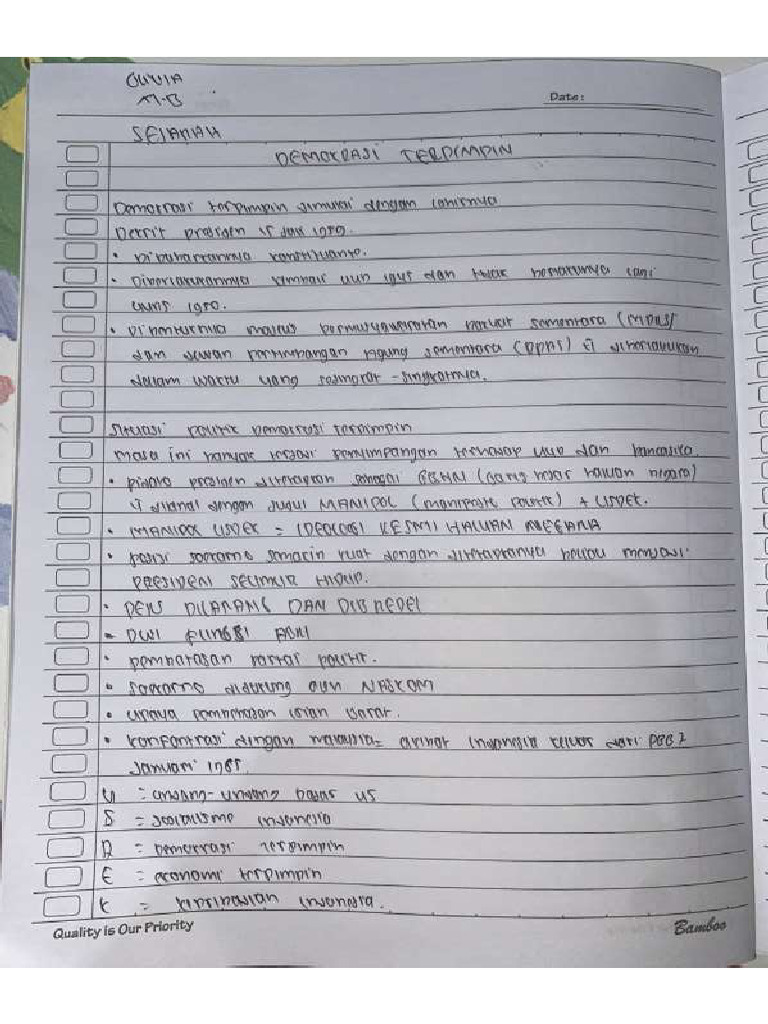 OLIVIA
Date:
SEJARAH
DEMOKRASI TERPIMPIN
Demokrasi terpimpin dimulai dengan lahirnya
Dekrit presiden 5 Juli 1959.
• Dibubarkannya konstituante.
• Diberlakukannya kembali UUD 1945 dan tidak berlakunya lagi
UUDS 1950.
• Dibentuknya majelis permusyawaratan rakyat sementara (MPRS)
dan dewan pertimbangan Agung sementara (DPAS) yg diberlakukan
dalam waktu yang sesingkat-singkatnya.
Situasi politik Demokrasi terpimpin
Masa ini banyak terjadi penyimpangan terhadap UUD dan pancasila
• pidato presiden diterapkan sebagai GBHN (Garis besar haluan negara)
yg dikenal dengan judul MANIPOL (manifesto politik) + USDEK.
• MANIPOL USDEK = IDEOLOGI RESMI HALUAN NEGARA
• posisi soekarno semakin kuat dengan ditetapkannya beliau menjadi
PRESIDEN SEUMUR HIDUP.
• PERS DILARANG DAN DIBREDEL
• DWI FUNGSI ABRI
• pembatasan partai politik.
• Soekarno didukung oleh NASKOM
• upaya pembebasan irian barat.
• Konfontrasi dengan malaysia = akibat Indonesia keluar dari PBB 7
Januari 1965.
U = undang-undang dasar 45
S = sosialisme indonesia
D = Demokrasi terpimpin
E = ekonomi terpimpin
K = kepribadian indonesia.
Quality is Our Priority
Bamboo